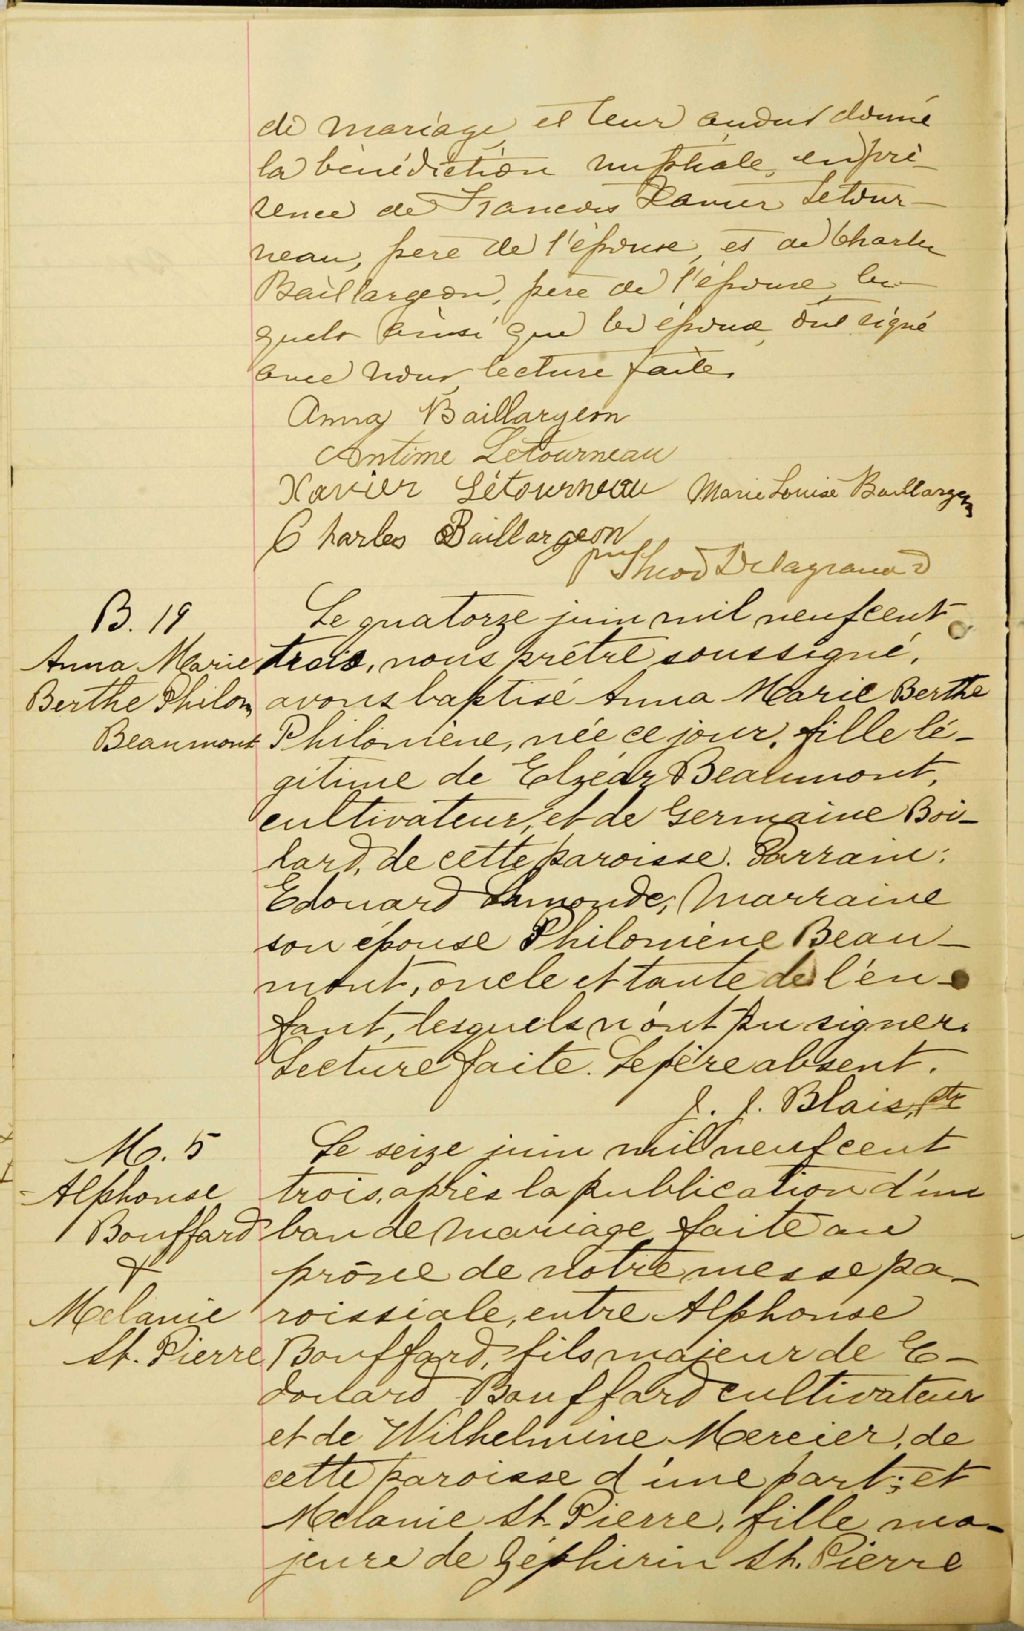 de mariage, et leur avons donné
la bénédiction nuptiale, en pré-
sence de Francois Xavier Letour-
neau, père de l'épouse, et de Charles
Baillargeon, père de l'épouse, les-
quels ainsi que les époux, ont signé
avec nous, lecture faite.
Anna Baillargeon
Antime Letourneau
Xavier Létourneau Marie Louise Baillargeon
Charles Baillargeon
Theod Delagrave
B. 19
Anna Marie
Berthe Philom
Beaumont
Le quatorze juin mil neuf cent
trois, nous prêtre soussigné,
avons baptisé Anna Marie Berthe
Philomène, née ce jour, fille lé-
gitime de Elzéar Beaumont,
cultivateur, et de Germaine Boi-
lard, de cette paroisse. Parrain:
Edouard Simonde, Marraine
son épouse Philomène Beau-
mont, oncle et tante de l'en-
fant, lesquels n'ont pu signer.
Lecture faite. Le père absent.
J. J. Blais, ptr
M. 5
Alphonse
Bouffard
&
Melanie
St. Pierre
Le seize juin mil neuf cent
trois, après la publication d'un
ban de mariage faite au
prône de notre messe pa-
roissiale, entre Alphonse
Bouffard, fils majeur de E-
douard Bouffard cultivateur
et de Wilhelmine Mercier, de
cette paroisse d'une part; et
Melanie St. Pierre, fille ma-
jeure de Zéphirin St. Pierre